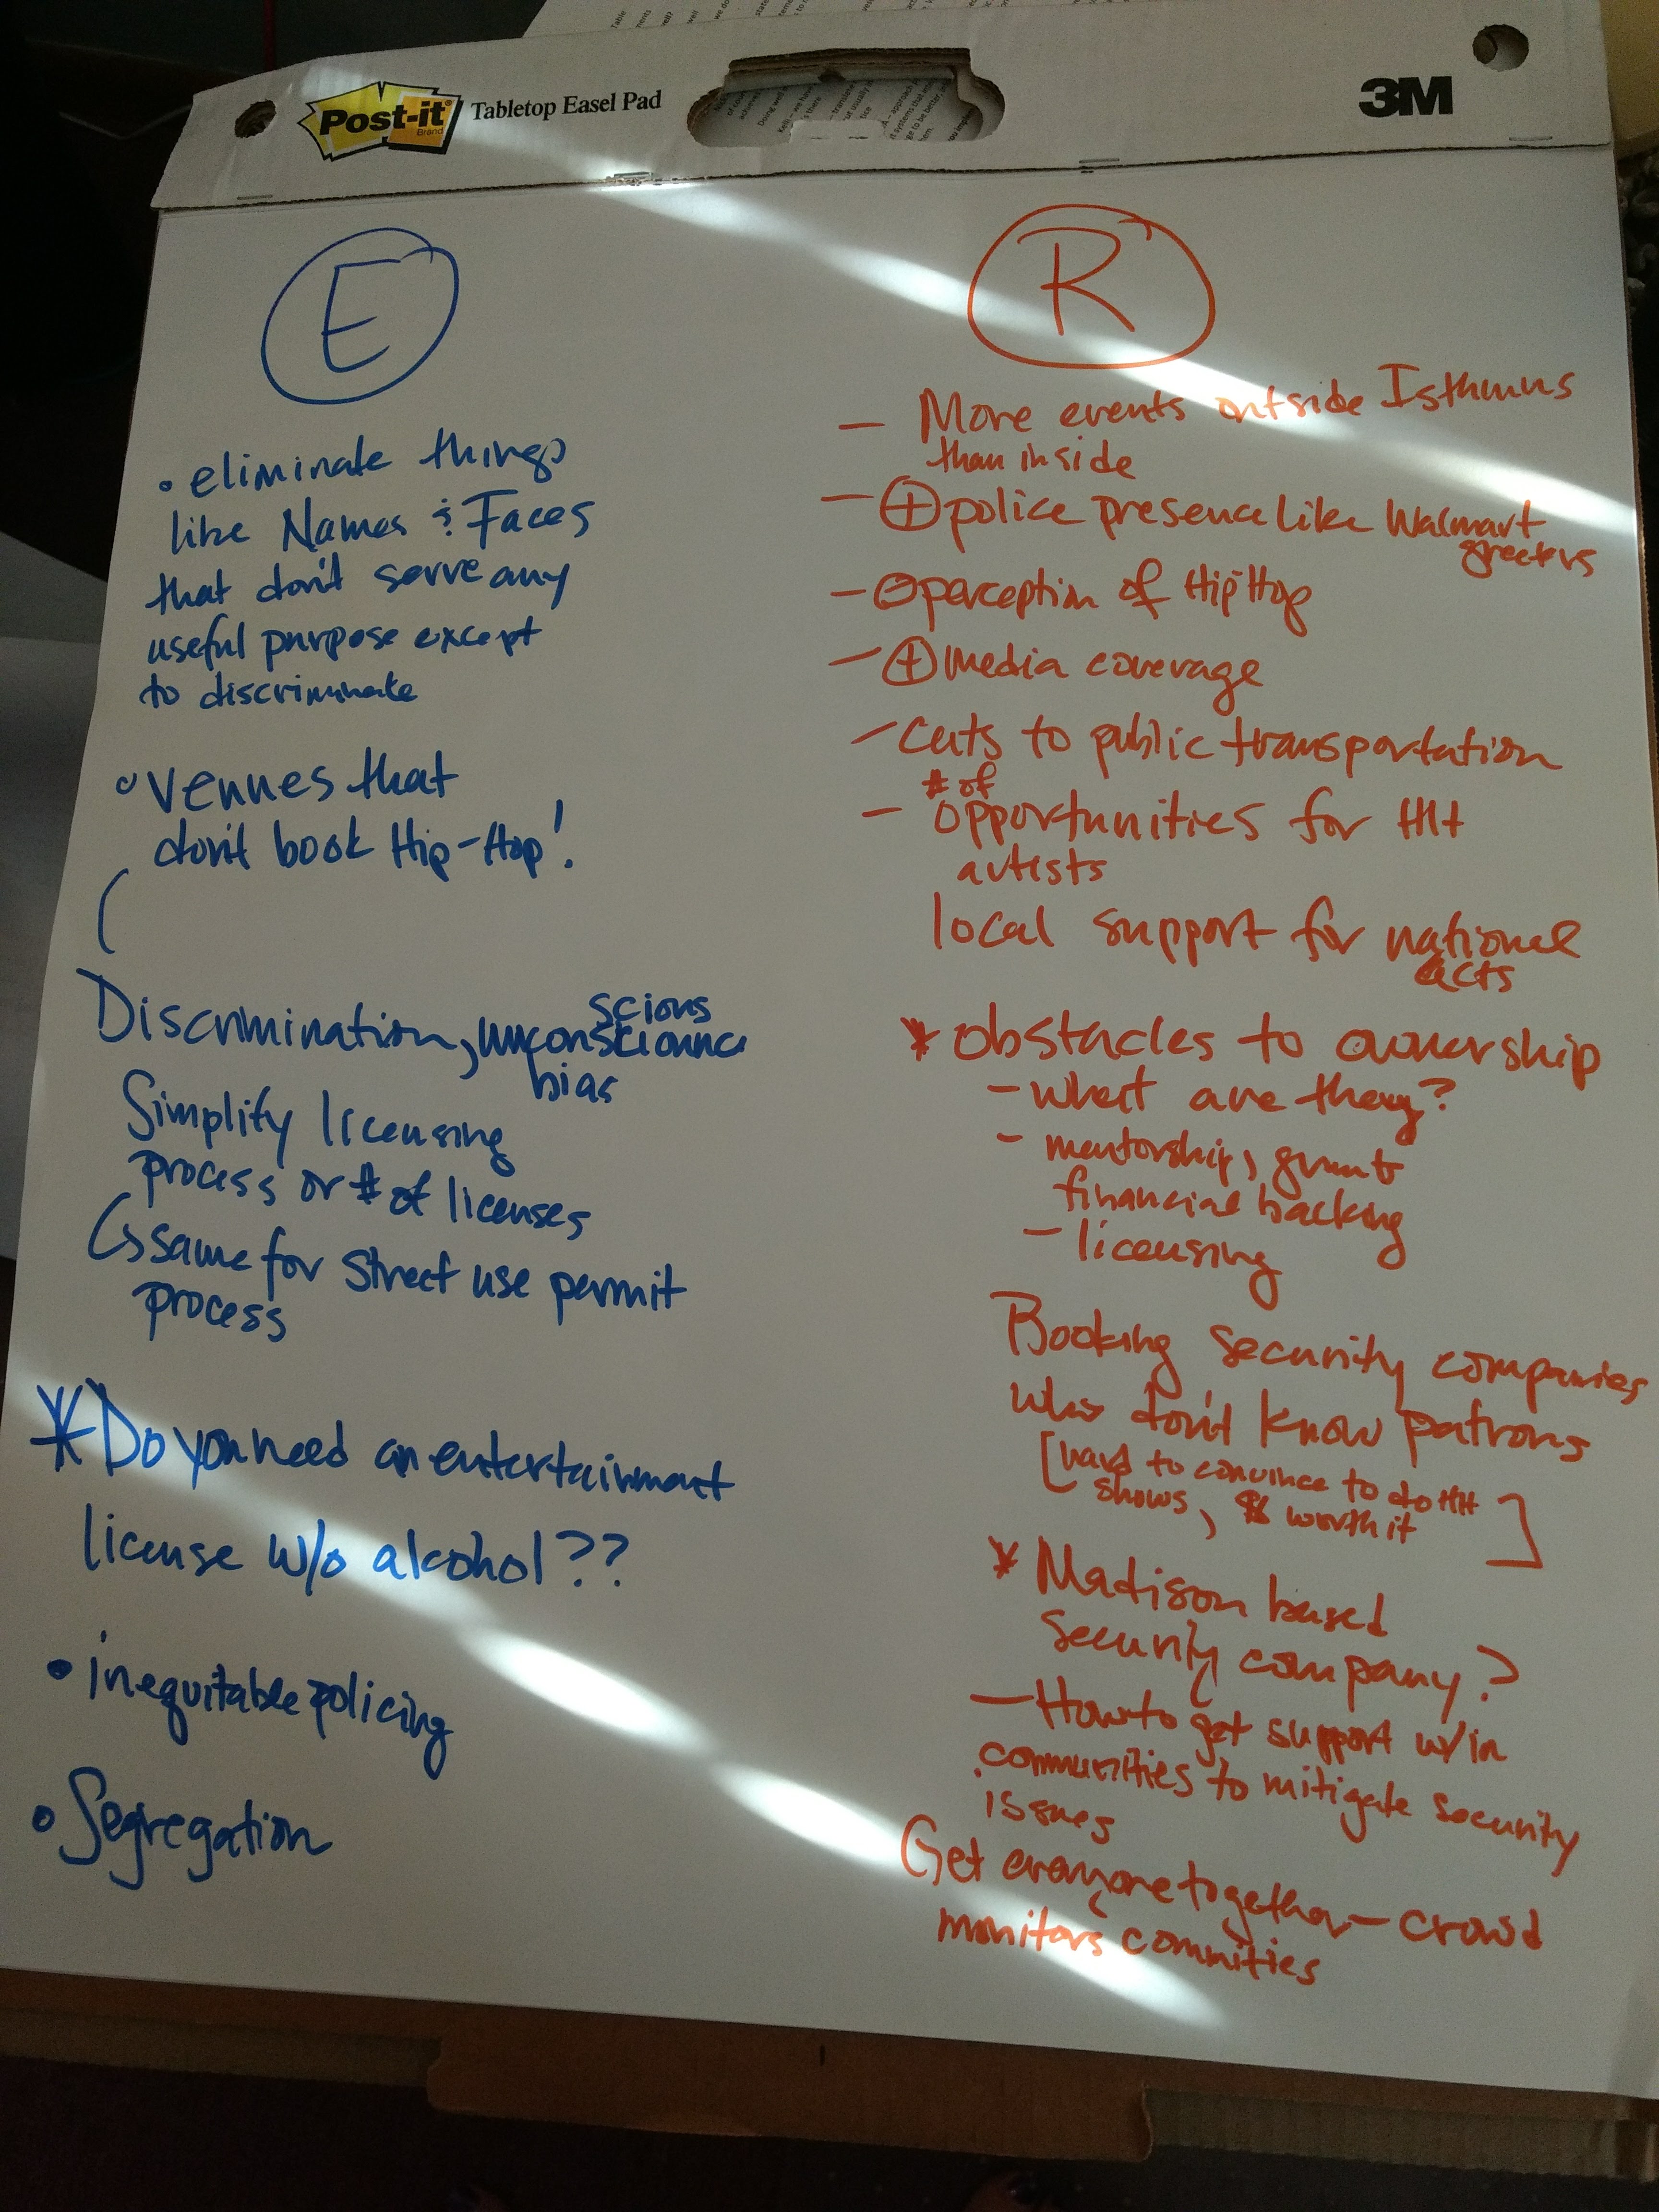 Post-it
Brand
Tabletop Easel Pad
3M
E
• eliminate things
like Names & Faces
that don't serve any
useful purpose except
to discriminate
• Venues that
don't book Hip-Hop!
(
Discrimination, unconscionnc
scious
bias
Simplify licensing
process or # of licenses
↳ same for street use permit
process
* Do you need an entertainment
license w/o alcohol??
• inequitable policing
• Segregation
R
— More events outside Isthmus
than inside
— ⊕ police presence like Walmart
greeters
— ⊖ perception of Hip Hop
— ⊕ media coverage
— Cuts to public transportation
# of
— opportunities for HH
artists
local support for national
acts
* obstacles to ownership
- what are they?
- mentorship, grants
financial backing
- licensing
Booking security companies
who don't know patrons
[hard to convince to do HH
shows, $ worth it]
* Madison based
security company?
— How to get support w/in
communities to mitigate security
issues
Get everyone together — crowd
monitors committies